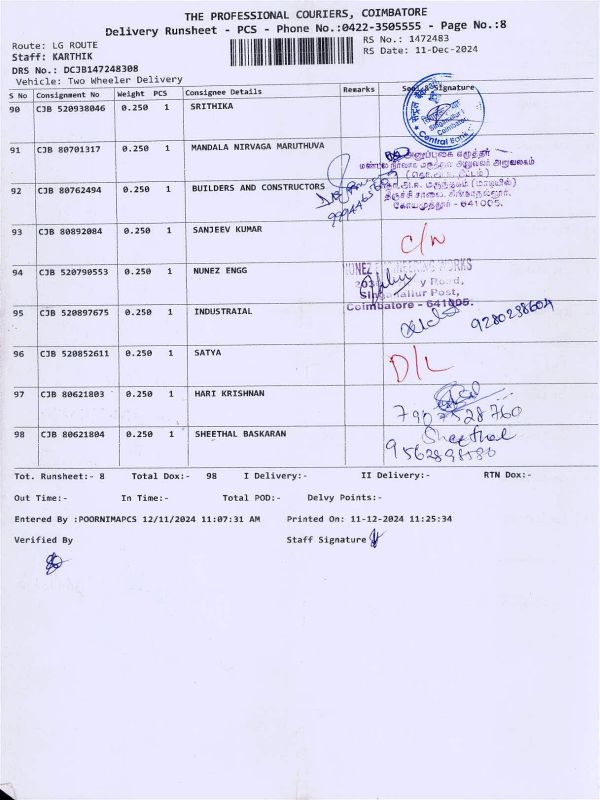 THE PROFESSIONAL COURIERS, COIMBATORE
Delivery Runsheet - PCS - Phone No.:0422-3505555 - Page No.:8
Route: LG ROUTE
RS No.: 1472483
Staff: KARTHIK
RS Date: 11-Dec-2024
DRS No.: DCJB147248308
Vehicle: Two Wheeler Delivery
S No Consignment No Weight PCS Consignee Details Remarks Signature
90 CJB 520938046 0.250 1 SRITHIKA
Singanallur
Coimbatore
Central Bank
91 CJB 80701317 0.250 1 MANDALA NIRVAGA MARUTHUVA
92 CJB 80762494 0.250 1 BUILDERS AND CONSTRUCTORS
மருந்தகம் (மாடியில்)
திருச்சி சாலை, சிங்காநல்லூர்,
கோயமுத்தூர் - 641005.
93 CJB 80892084 0.250 1 SANJEEV KUMAR
C/N
94 CJB 520790553 0.250 1 NUNEZ ENGG
NUNEZ ENGINEERING WORKS
y Road,
Singanallur Post,
Coimbatore - 641005.
95 CJB 520897675 0.250 1 INDUSTRAIAL
9280238604
96 CJB 520852611 0.250 1 SATYA
D/L
97 CJB 80621803 0.250 1 HARI KRISHNAN
7907528760
98 CJB 80621804 0.250 1 SHEETHAL BASKARAN
Sheethal
Tot. Runsheet:- 8 Total Dox:- 98 I Delivery:- II Delivery:- RTN Dox:-
Out Time:- In Time:- Total POD:- Delvy Points:-
Entered By :POORNIMAPCS 12/11/2024 11:07:31 AM Printed On: 11-12-2024 11:25:34
Verified By Staff Signature